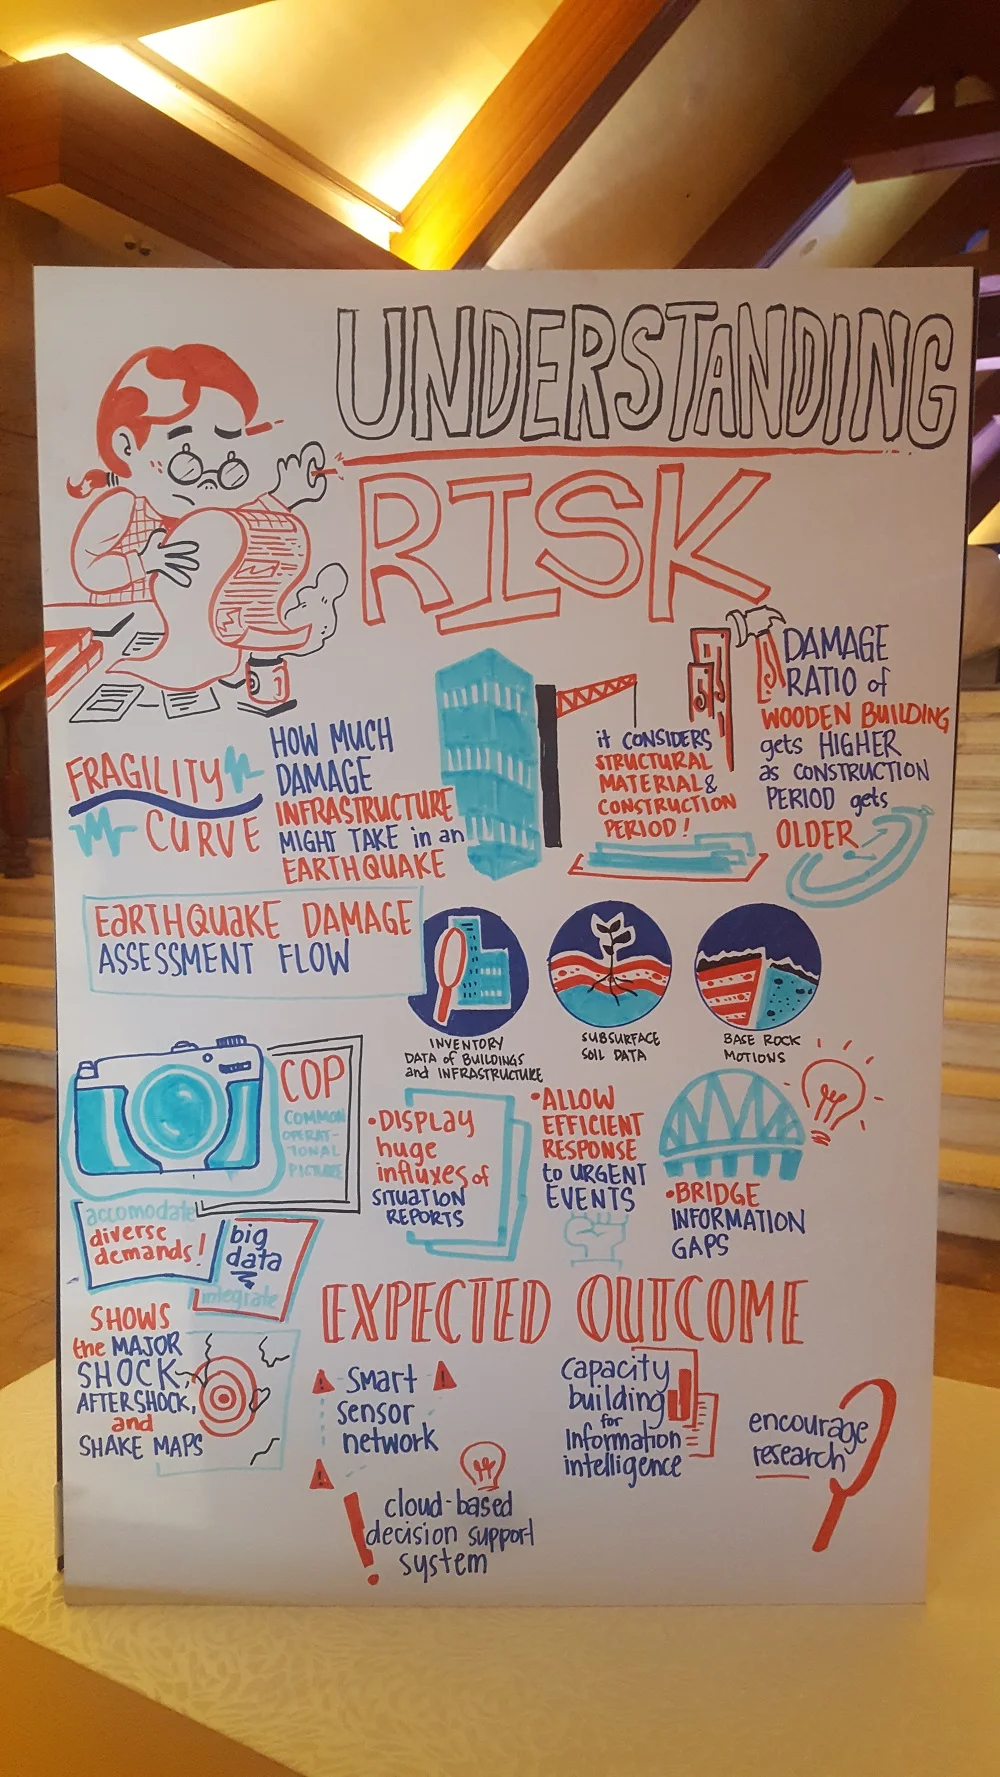 UNDERSTANDING
RISK
FRAGILITY
CURVE
HOW MUCH
DAMAGE
INFRASTRUCTURE
MIGHT TAKE in an
EARTHQUAKE
it CONSIDERS
STRUCTURAL
MATERIAL &
CONSTRUCTION
PERIOD!
DAMAGE
RATIO of
WOODEN BUILDING
gets HIGHER
as CONSTRUCTION
PERIOD gets
OLDER
EARTHQUAKE DAMAGE
ASSESSMENT FLOW
INVENTORY
DATA of BUILDINGS
and INFRASTRUCTURE
SUBSURFACE
SOIL DATA
BASE ROCK
MOTIONS
COP
COMMON
OPERAT-
IONAL
PICTURE
accomodate
diverse
demands!
big
data
integrate
•DISPLAY
huge
influxes of
SITUATION
REPORTS
•ALLOW
EFFICIENT
RESPONSE
to URGENT
EVENTS
•BRIDGE
INFORMATION
GAPS
SHOWS
the MAJOR
SHOCK,
AFTERSHOCK,
and
SHAKE MAPS
EXPECTED OUTCOME
smart
sensor
network
cloud-based
decision support
system
capacity
building
for
Information
intelligence
encourage
research